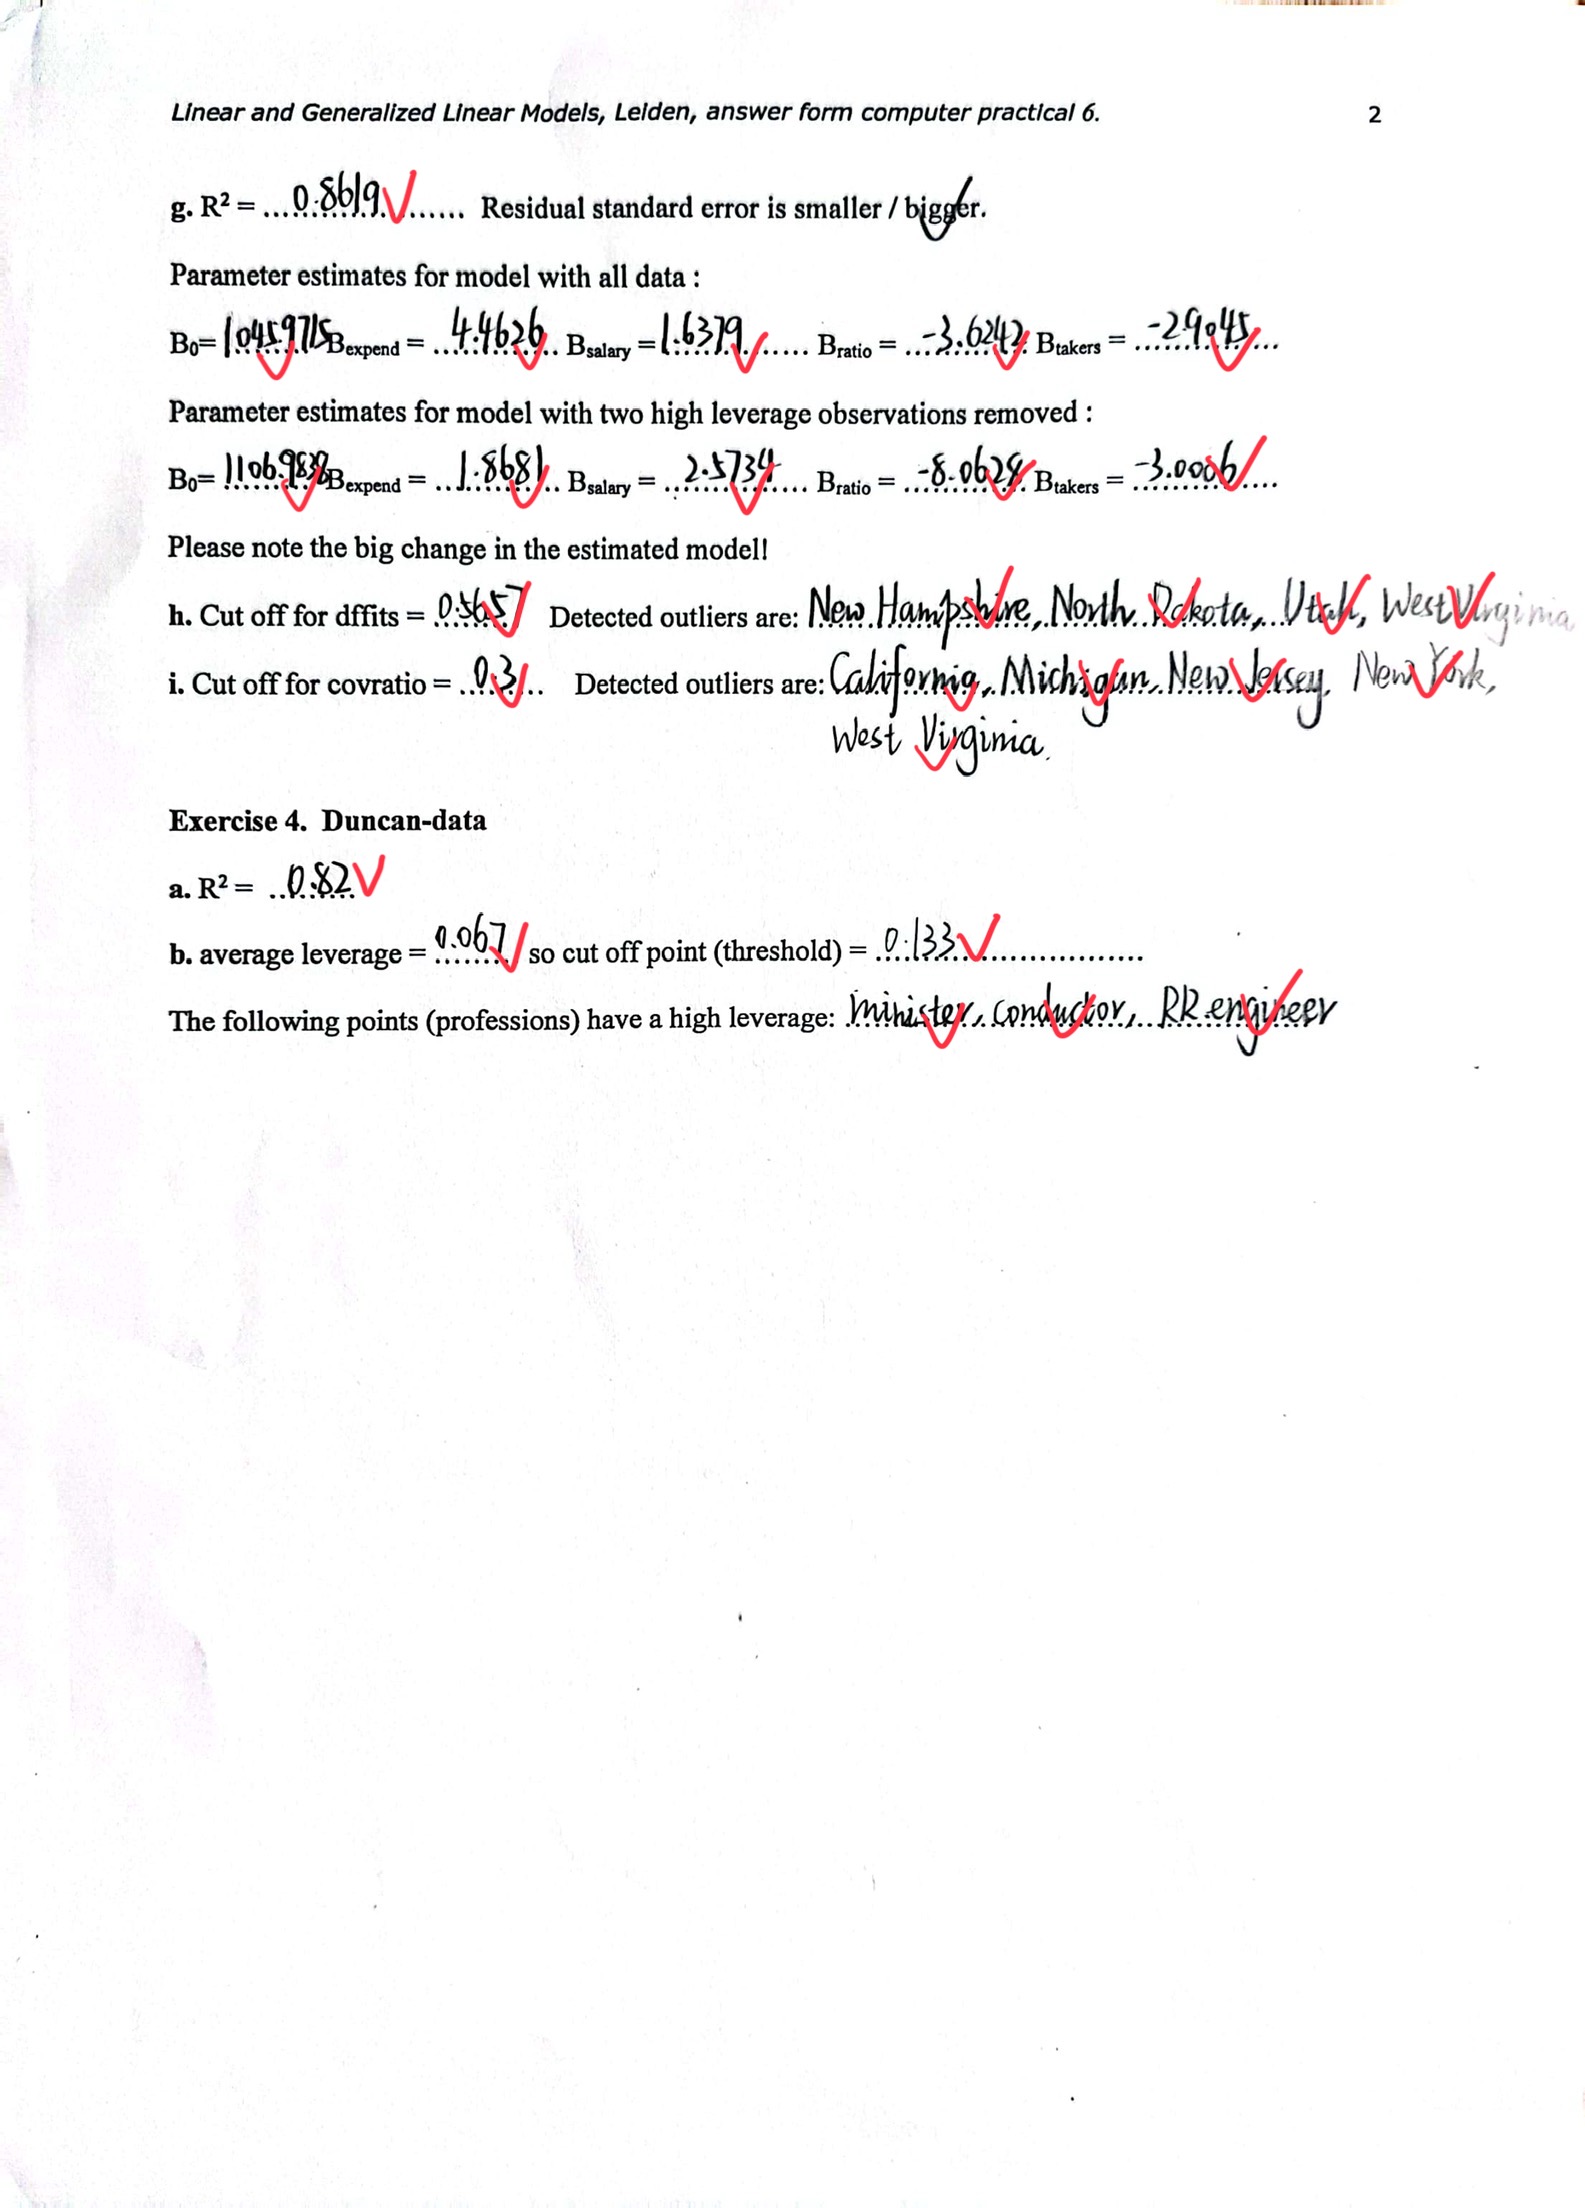 Linear and Generalized Linear Models, Leiden, answer form computer practical 6. 2
g. R² = ...0.8619...... Residual standard error is smaller / bigger.
Parameter estimates for model with all data :
B0= 1045.9715 Bexpend = ..4.4626.. Bsalary = 1.6379...... Bratio = ..-3.6242 Btakers = ..-2.9045...
Parameter estimates for model with two high leverage observations removed :
B0= 1106.9838 Bexpend = ..1.8681.. Bsalary = ..2.5734.... Bratio = ..-8.0628 Btakers = -3.0006....
Please note the big change in the estimated model!
h. Cut off for dffits = 0.5657 Detected outliers are: New Hampshire, North Dakota, Utah, West Virginia
i. Cut off for covratio = ..0.3... Detected outliers are: California, Michigan, New Jersey, New York,
West Virginia.
Exercise 4. Duncan-data
a. R² = ..0.82
b. average leverage = 0.067 so cut off point (threshold) = 0.133..................
The following points (professions) have a high leverage: minister, conductor, RR.engineer